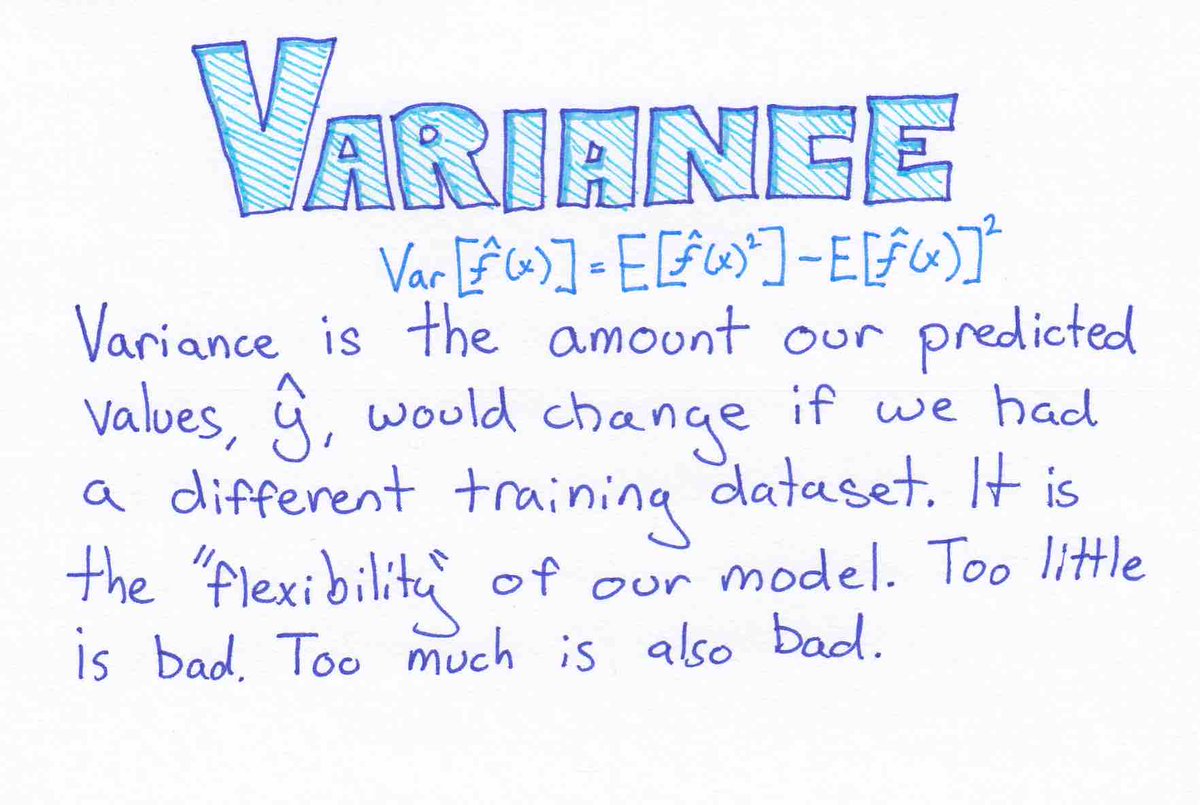 VARIANCE
Var[f̂(x)] = E[f̂(x)²] - E[f̂(x)]²
Variance is the amount our predicted
values, ŷ, would change if we had
a different training dataset. It is
the "flexibility" of our model. Too little
is bad. Too much is also bad.